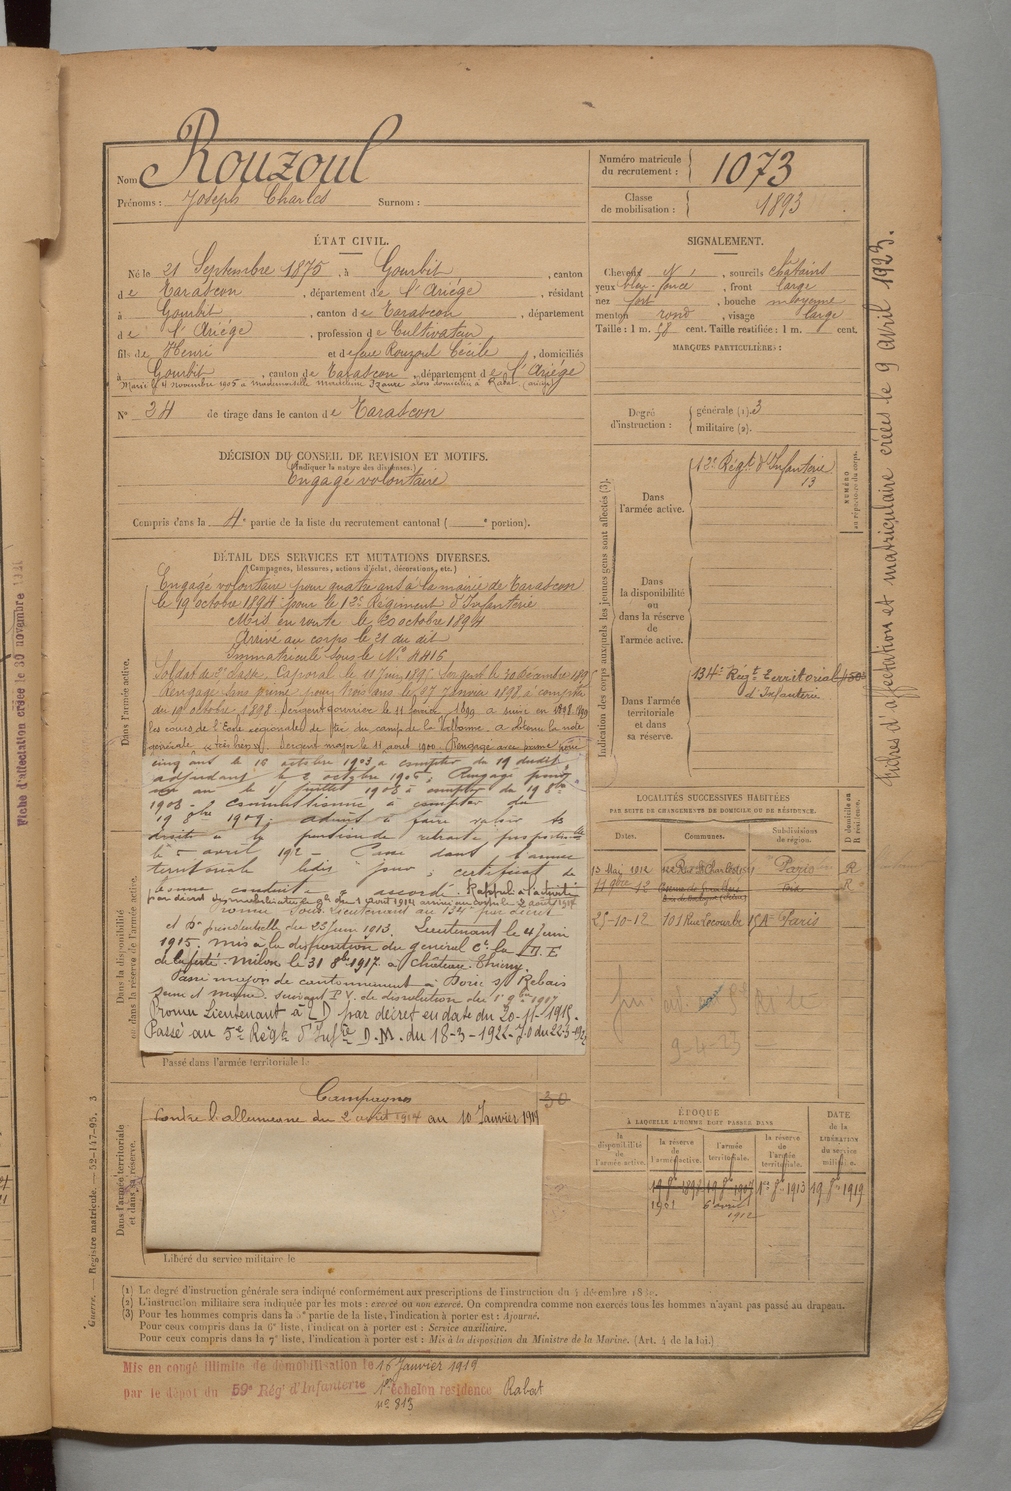 Nom Rouzoul
Prénoms : Joseph Charles Surnom :
Numéro matricule du recrutement : 1073
Classe de mobilisation : 1893
ÉTAT CIVIL.
Né le 21 Septembre 1875, à Gourbit, canton
de Tarascon, département de l'Ariége, résidant
à Gourbit, canton de Tarascon, département
de l'Ariége, profession de Cultivateur
fils de Henri et de feue Rouzoul Cécile, domiciliés
à Gourbit, canton de Tarascon, département de l'Ariége
Marié le 4 novembre 1905 à Mademoiselle
N° 34 de tirage dans le canton de Tarascon
DÉCISION DU CONSEIL DE REVISION ET MOTIFS.
(Indiquer la nature des dispenses.)
Engagé volontaire
Compris dans la 4e partie de la liste du recrutement cantonal ( e portion).
SIGNALEMENT.
Cheveux , sourcils châtains
yeux , front large
nez fort, bouche moyenne
menton rond, visage large
Taille : 1 m. 58 cent. Taille rectifiée : 1 m. cent.
MARQUES PARTICULIÈRES :
Degré d'instruction : générale (1). 3
militaire (2).
Indication des corps auxquels les jeunes gens sont affectés (3).
NUMÉRO au répertoire du corps.
Dans l'armée active.
12e Régt d'Infanterie
13
Dans la disponibilité ou dans la réserve de l'armée active.
Dans l'armée territoriale et dans sa réserve.
134e Régt Territorial
d'Infanterie
DÉTAIL DES SERVICES ET MUTATIONS DIVERSES.
(Campagnes, blessures, actions d'éclat, décorations, etc.)
Dans l'armée active.
Engagé volontaire pour quatre ans à la mairie de Tarascon
le 19 octobre 1894 pour le 12e Régiment d'Infanterie
Mis en route le 20 octobre 1894
Arrivé au corps le 21 du dit
Immatriculé sous le N°
Soldat de 2e classe. Caporal le 11 Juin 1895. Sergent le 30 décembre
Rengagé sans prime pour trois ans le 17 Janvier 1898 à compter
du 19 octobre 1898. Sergent fourrier le 11 février 1899 a suivi en 1898
les cours de l'École régionale de tir du camp de la Valbonne. a obtenu la note
générale "très bien". Sergent major le 11 août 1900. Rengagé avec prime pour
cinq ans le 16 octobre 1903 à compter du 19 dudit
adjudant le 2 octobre 1905. Rengagé pour
un an le 11 juillet 1908 à compter du 19 8bre
1908. Commissionné à compter du
19 1909. admis à faire valoir ses
droits à la pension de retraite proportionnelle
le 5 avril 191 Passé dans l'armée
territoriale ledit jour, certificat de
bonne conduite accordé. Rappelé à l'activité
par décret de mobilisation gle du 1 août 1914 arrivé au corps le 2 août 1914
Promu Sous Lieutenant au 134e par décret
présidentielle du 23 Juin 1913. Lieutenant le 4 Juin
1915. mis à la disposition du général Ct la D.E
de la ferté Milon le 31 8bre 1917 à Château Thierry.
Passé major de cantonnement à
Seine et marne. suivant P.V. de dissolution du 1er 9bre 1917
Promu Lieutenant à T D par décret en date du 20-11-1918.
Passé au 5e Régt d'Infie D.M. du 18-3-1922 J.O du 22-3-1922
Dans la disponibilité ou dans la réserve de l'armée active.
Passé dans l'armée territoriale le
Dans l'armée territoriale et dans sa réserve.
Campagnes
Contre l'allemagne du 2 août 1914 au 10 Janvier 1919
Libéré du service militaire le
LOCALITÉS SUCCESSIVES HABITÉES
PAR SUITE DE CHANGEMENTS DE DOMICILE OU DE RÉSIDENCE.
Dates. Communes. Subdivisions de région. D domicile ou R résidence.
13 Mai 1912 Rue St Charles Paris R
25-10-12 101 Rue Lecourbe 15 A Paris
9-4-23
ÉPOQUE
À LAQUELLE L'HOMME DOIT PASSER DANS
DATE DE LA LIBÉRATION du service militaire.
la disponibilité de l'armée active. la réserve de l'armée active. l'armée territoriale. la réserve de l'armée territoriale.
19 8bre 1897 19 8bre 1907 1er 8bre 1913 19 8bre 1919
1901 6 avril
1912
(1) Le degré d'instruction générale sera indiqué conformément aux prescriptions de l'instruction du 4 décembre
(2) L'instruction militaire sera indiquée par les mots : exercé ou non exercé. On comprendra comme non exercés tous les hommes n'ayant pas passé au drapeau.
(3) Pour les hommes compris dans la 5e partie de la liste, l'indication à porter est : Ajourné.
Pour ceux compris dans la 6e liste, l'indication à porter est : Service auxiliaire.
Pour ceux compris dans la 7e liste, l'indication à porter est : Mis à la disposition du Ministre de la Marine. (Art. 4 de la loi.)
Mis en congé illimité de démobilisation le 16 Janvier 1919
par le dépôt du 59e Rég' d'Infanterie 1er échelon residence Rabat
n° 813
Guerre. — Registre matricule. — 52-147-95. 3
Fiches d'affectation et matriculaire créées le 9 avril 1923.
Fiche d'affectation créée le 30 novembre